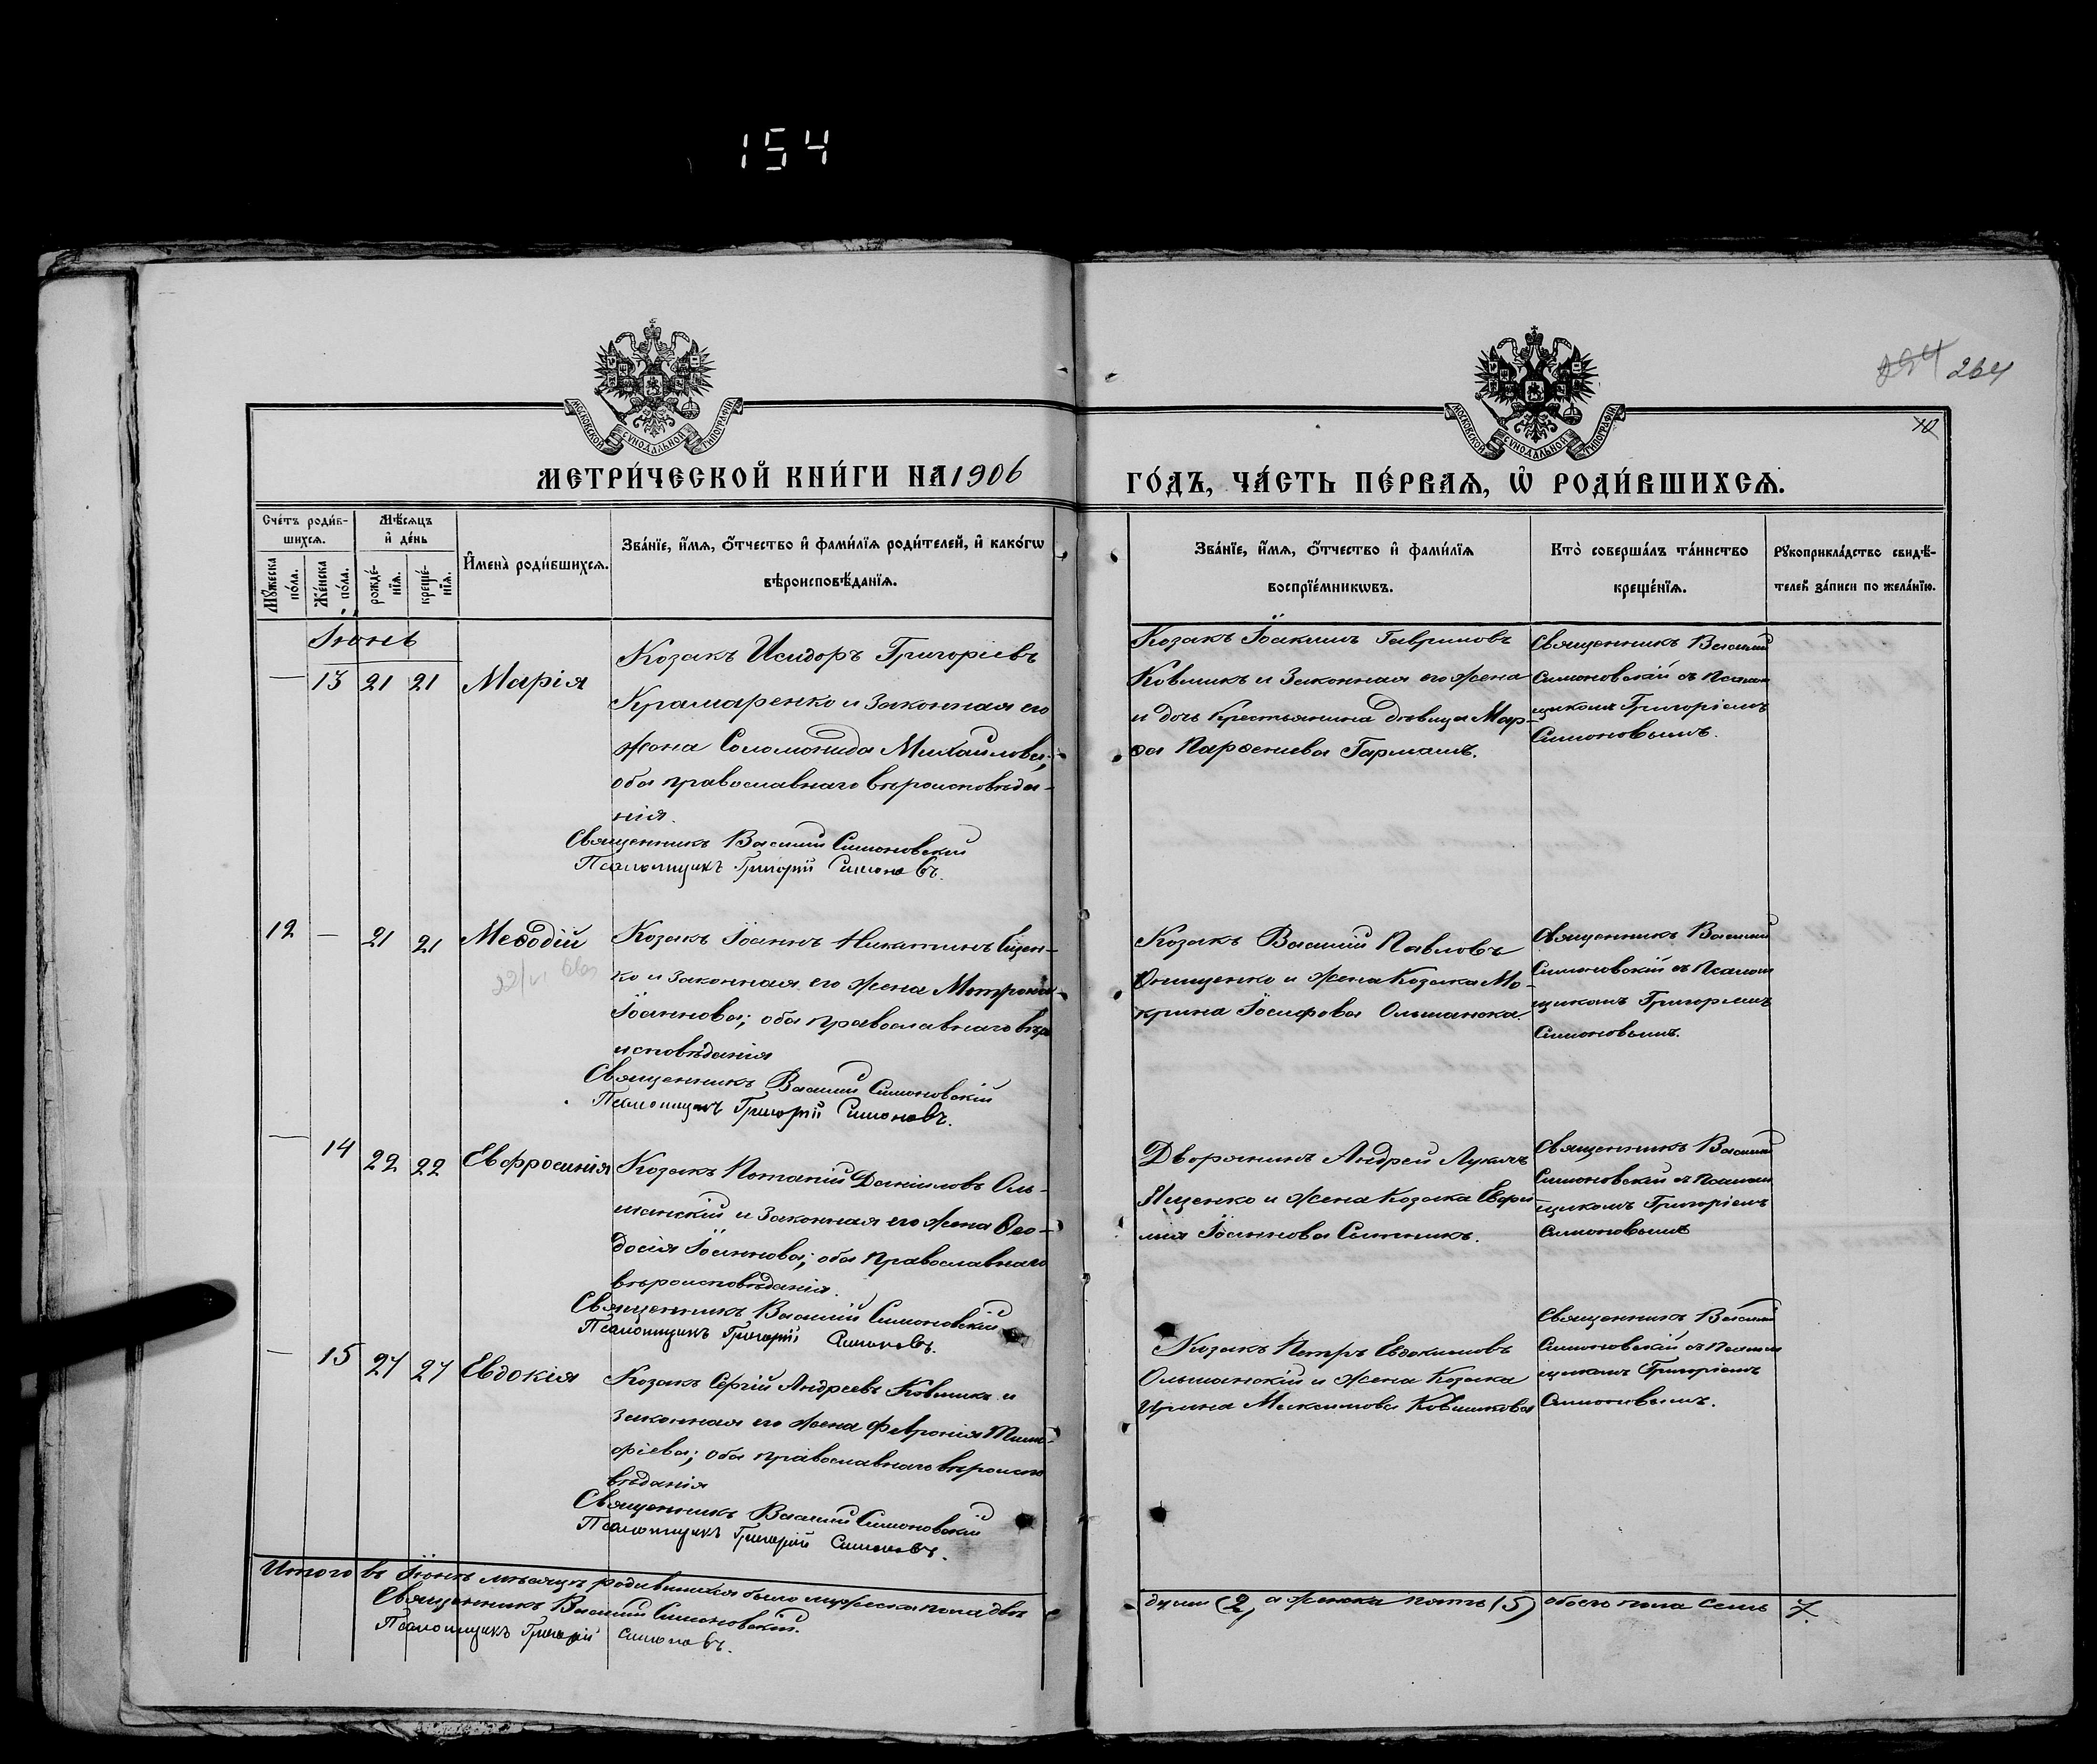 154
264
МОСКОВСКОЙ СѴНОДАЛЬНОЙ ТИПОГРАФІИ
МОСКОВСКОЙ СѴНОДАЛЬНОЙ ТИПОГРАФІИ
МЕТРИ́ЧЕСКОЙ КНИ́ГИ НА 1906
ГО́ДЪ, ЧА́СТЬ ПЕ́РВАѦ, Ѽ РОДИ́ВШИХСѦ.
Сче́тъ роди́в-
шихсѧ.
Мѣ́сѧцъ
и҆ де́нь
Мꙋ́жеска
по́ла.
Же́нска
по́ла.
рожде́-
нїѧ.
креще́-
нїѧ.
И҆мена̀ роди́вшихсѧ.
Зва́нїе, и҆́мѧ, ѻ҆́тчество и҆ фами́лїѧ роди́телей, и҆ како́гѡ
вѣроисповѣ́данїѧ.
Зва́нїе, и҆́мѧ, ѻ҆́тчество и҆ фами́лїѧ
воспрїе́мникѡвъ.
Кто̀ соверша́лъ та́инство
креще́нїѧ.
Рꙋкоприкла́дство свидѣ́-
телей за́писи по жела́нїю.
Іюнь
— 13 21 21 Марія
Козакъ Исидоръ Григоріевъ
Крамаренко и законная его
жена Соломонида Михаилова;
оба православнаго вѣроисповѣда-
нія.
Священникъ Василій Симоновскій
Псаломщикъ Григорій Симоновъ.
Козакъ Іоакимъ Гавриловъ
Ковшикъ и законная его жена
и дочь крестьянина дѣвица Мар-
ѳа Парѳениева Гармашъ.
Священникъ Василій
Симоновскій съ Псалом
щикомъ Григоріемъ
Симоновымъ.
12 — 21 21 Меѳодій
Козакъ Іоаннъ Никитинъ
ко и законная его жена Матрона
Іоаннова; оба православнаго вѣро
исповѣданія
Священникъ Василій Симоновскій
Псаломщикъ Григорій Симоновъ.
Козакъ Василій Павловъ
Онищенко и жена Козака Ма-
крина Іосифова Ольшанска.
Священникъ Василій
Симоновскій съ Псалом
щикомъ Григоріемъ
Симоновымъ.
— 14 22 22 Евфросинія
Козакъ Потапій Даніиловъ Оль-
шанскій и законная его жена Ѳео-
досія Іоаннова; оба православнаго
вѣроисповѣданія.
Священникъ Василій Симоновскій
Псаломщикъ Григорій Симоновъ.
Дворянинъ Андрей Лукичъ
Яценко и жена Козака Евфи-
мія Іоаннова Сытникъ.
Священникъ Василій
Симоновскій съ Псалом
щикомъ Григоріемъ
Симоновымъ
— 15 27 27 Евдокія
Козакъ Сергій Андреевъ Ковшикъ и
законная его жена Февронія Тимо-
фіева; оба православнаго вѣроиспо
вѣданія
Священникъ Василій Симоновскій
Псаломщикъ Григорій Симоновъ.
Козакъ Петръ Евдокимовъ
Ольшанскій и жена Козака
Ирина Максимова Ковшикова
Священникъ Василій
Симоновскій съ Псалом
щикомъ Григоріемъ
Симоновымъ.
Итого въ Іюнѣ мѣсяцѣ родившихся было мужеска пола двѣ
души (2) а женска пять (5) обоего пола семь 7.
Священникъ Василій Симоновскій.
Псаломщикъ Григорій Симоновъ.